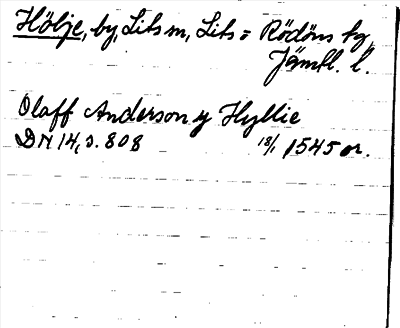 Hölje, by, Lits sn, Lits = Rödöns tg,
Jämtl. l.
Olaff Anderson y Hyllie
DN 14, s. 808 18/1 1545 or.